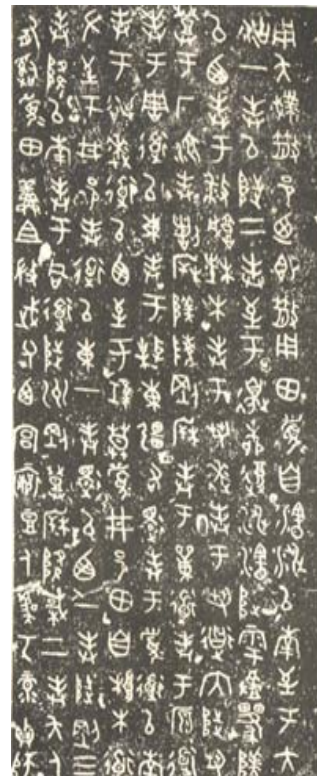 用夨撲散邑迺即散用田眉自瀗涉以南至于大
沽一封以陟二封至于邊柳復涉瀗陟雩陵
以西封于播城楮木封于芻逨封于芻道內陟芻
登于厂湶封割柝陵剛柝封于單道封于原道
封于周道以東封于東疆右還封于眉道以南
封于逨道以西至于莫眉井邑田自根木道
左至于井邑封道以東一封還以西一封陟剛三
封降以南封于同道陟州剛登柝降棫二封夨人
有司眉田鮮且微武父西宮襄豆人虞丂